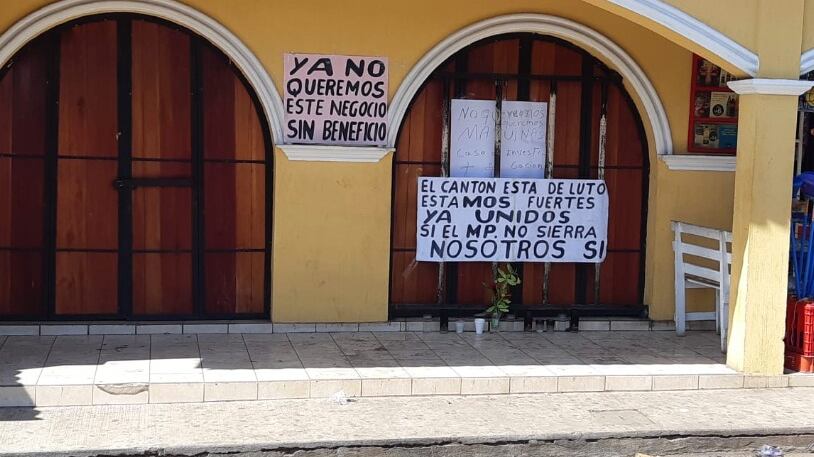 YA NO
QUEREMOS
ESTE NEGOCIO
SIN BENEFICIO
No queremos
queremos
MAQUINAS
Caso Investi
gacion
EL CANTON ESTA DE LUTO
ESTAMOS FUERTES
YA UNIDOS
SI EL MP. NO SIERRA
NOSOTROS SI